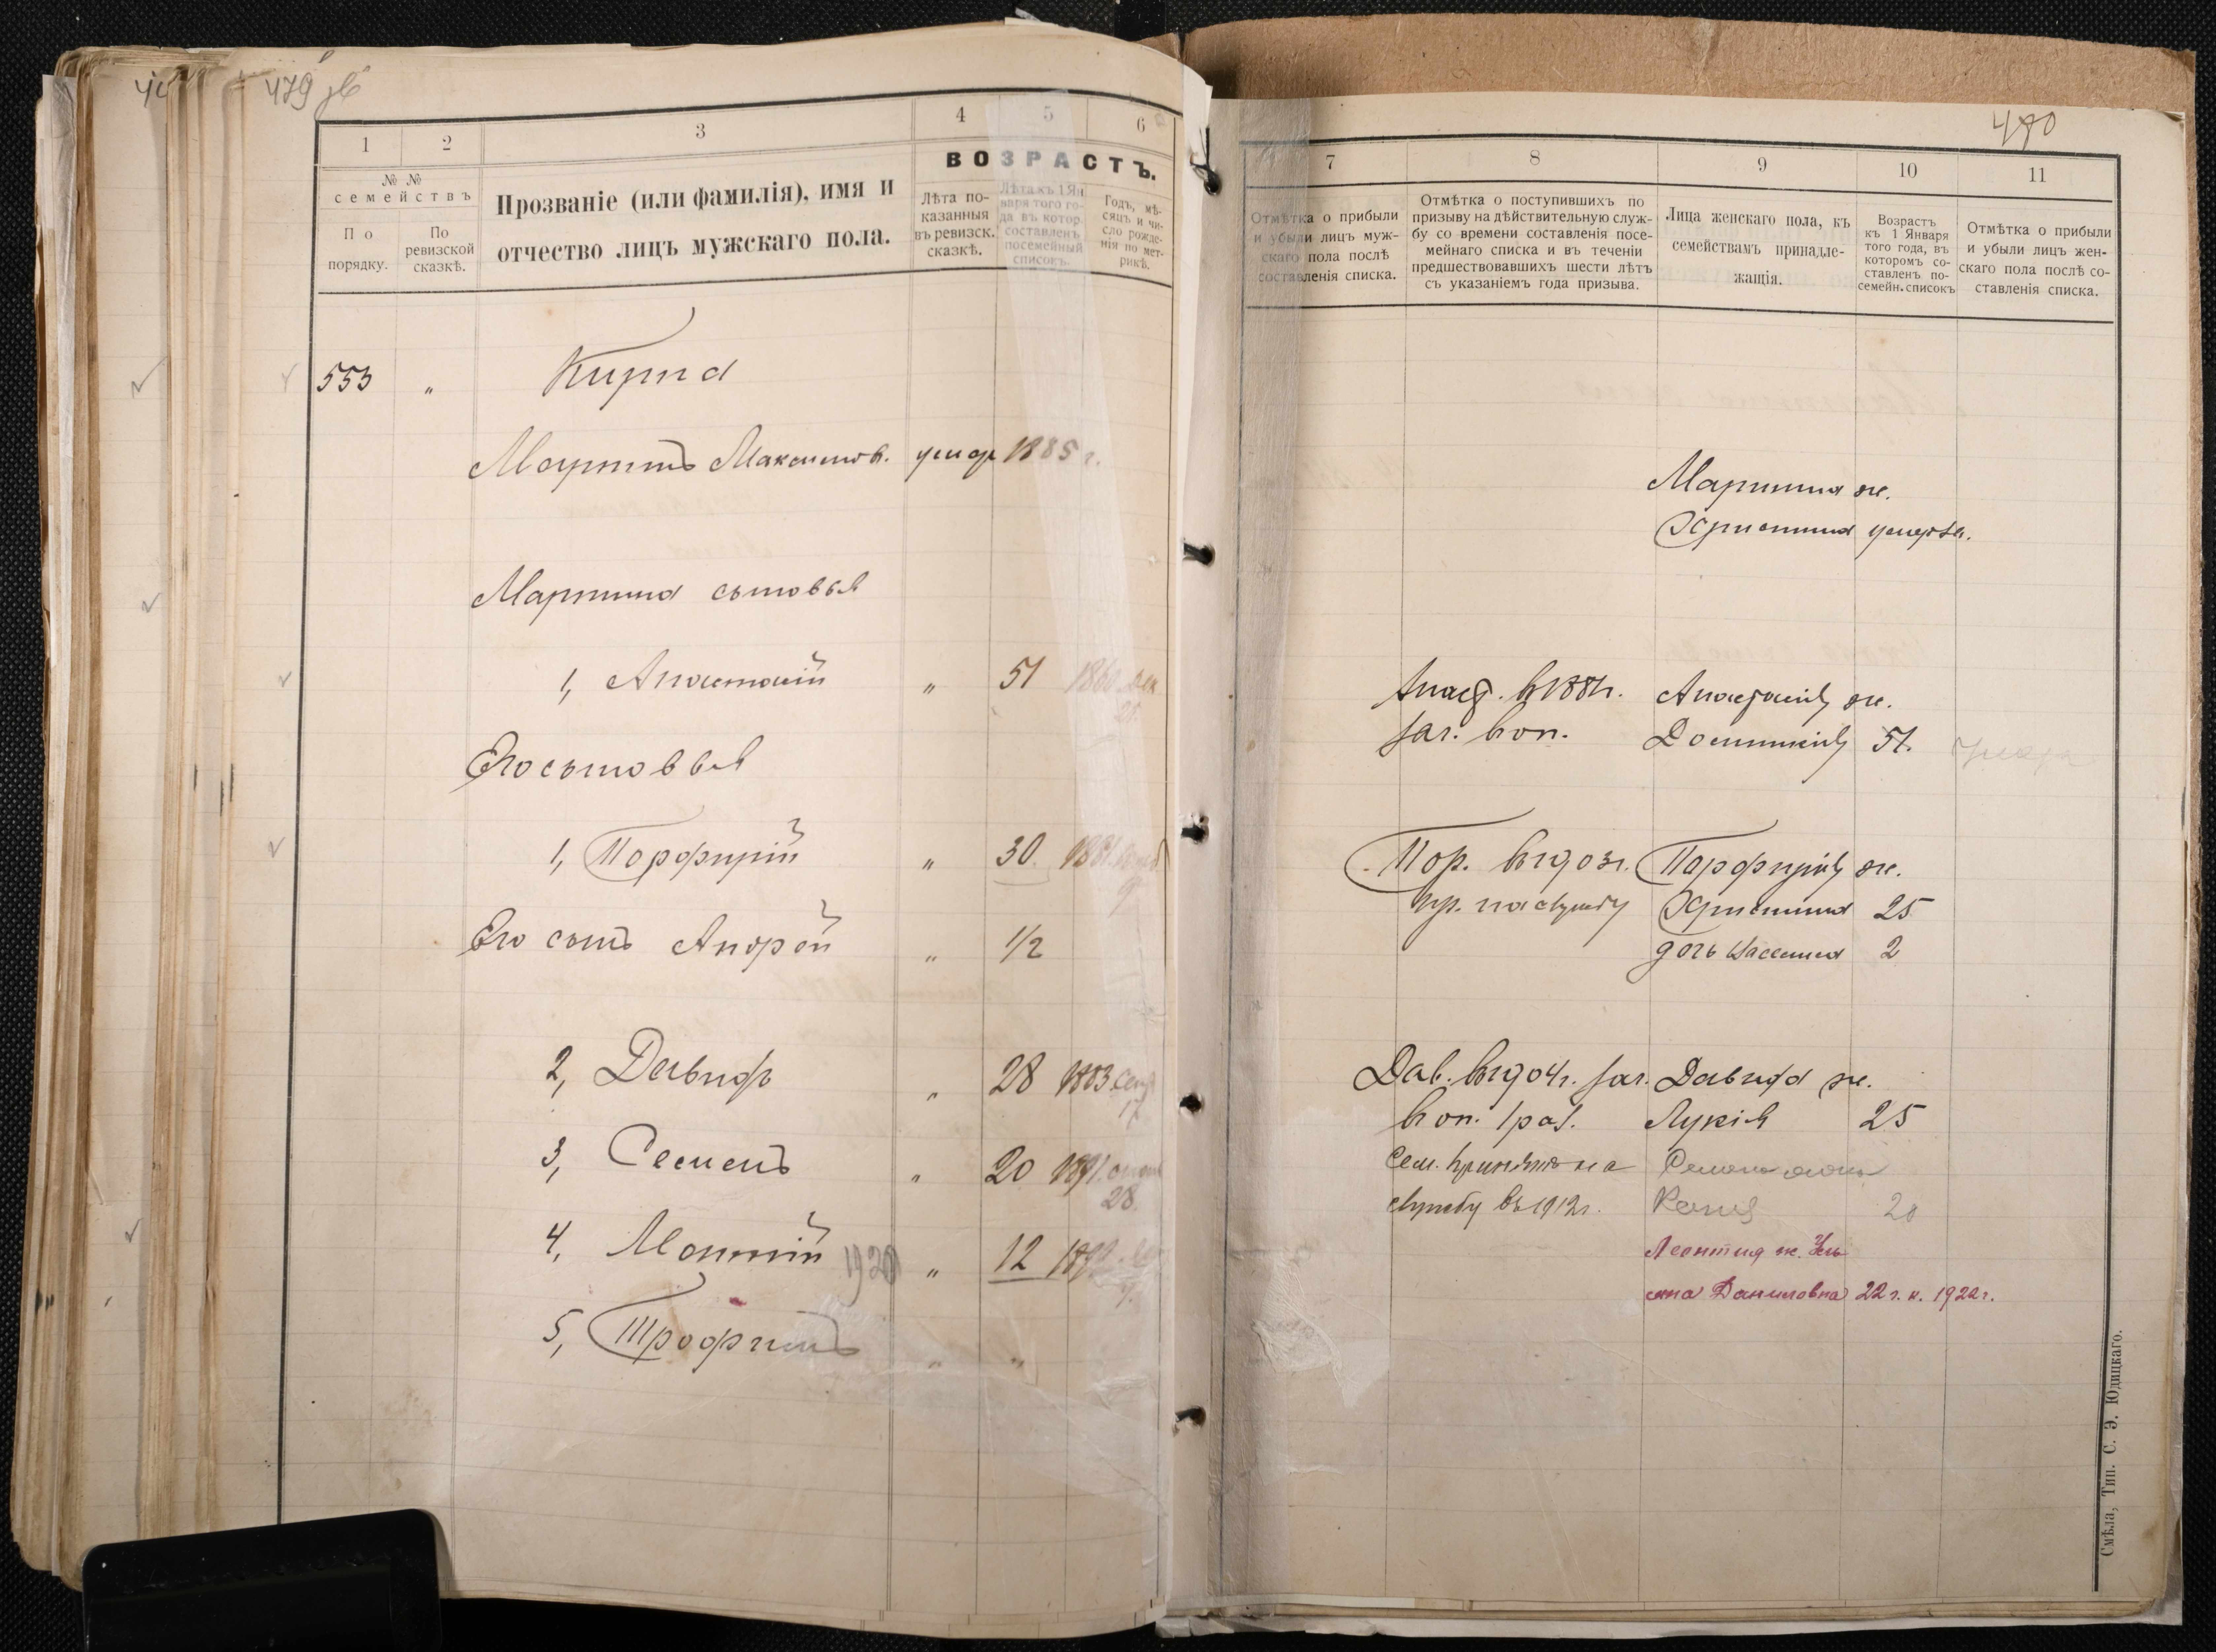 479 зв
1
2
3
4
5
6
№ №
семействъ
По порядку.
По ревизской сказкѣ.
Прозваніе (или фамилія), имя и
отчество лицъ мужскаго пола.
ВОЗРАСТЪ.
Лѣта по-
казанныя
въ ревизск.
сказкѣ.
Лѣта къ 1 Ян
варя того го-
да въ котор.
составленъ
посемейный
списокъ.
Годъ, мѣ-
сяцъ и чи-
сло рожде-
нія по мет-
рикѣ.
553 "
Мартинъ Максимов. умер 1885 г.
Мартина сыновья
1, Анастасій " 51 1860
Его сыновья
1, Порфирій " 30. 1881
9
Его сынъ Андрей " 1/2
2, Давидъ " 28 1883 Сент
17
3, Семенъ " 20 1891
28.
4, Леонтій 1920 " 12 1899
5, Трофимъ " "
480
7
8
9
10
11
Отмѣтка о прибыли
и убыли лицъ муж-
скаго пола послѣ
составленія списка.
Отмѣтка о поступившихъ по
призыву на дѣйствительную служ-
бу со времени составленія посе-
мейнаго списка и въ теченіи
предшествовавшихъ шести лѣтъ
съ указаніемъ года призыва.
Лица женскаго пола, къ
семействамъ принадле-
жащія.
Возрастъ
къ 1 Января
того года, въ
которомъ со-
ставленъ по-
семейн. списокъ
Отмѣтка о прибыли
и убыли лицъ жен-
скаго пола послѣ со-
ставленія списка.
Мартина ж.
Христина умерла.
Анаст. в 1881г. Анастасія ж.
заг. в оп. 51. умерла
Пор. въ 903г. Порфирія ж.
пр. на службу Христина 25
дочь Вассина 2
Дав. въ 904г. заг. Давида ж.
в оп. 1 раз. Лукія 25
Сем. принятъ на Семена жена
службу въ 1912г. 20
Леонтия ж. Уль
яна Даниловна 22 г. к. 1922 г.
Смѣла, Тип. С. Э. Юдицкаго.